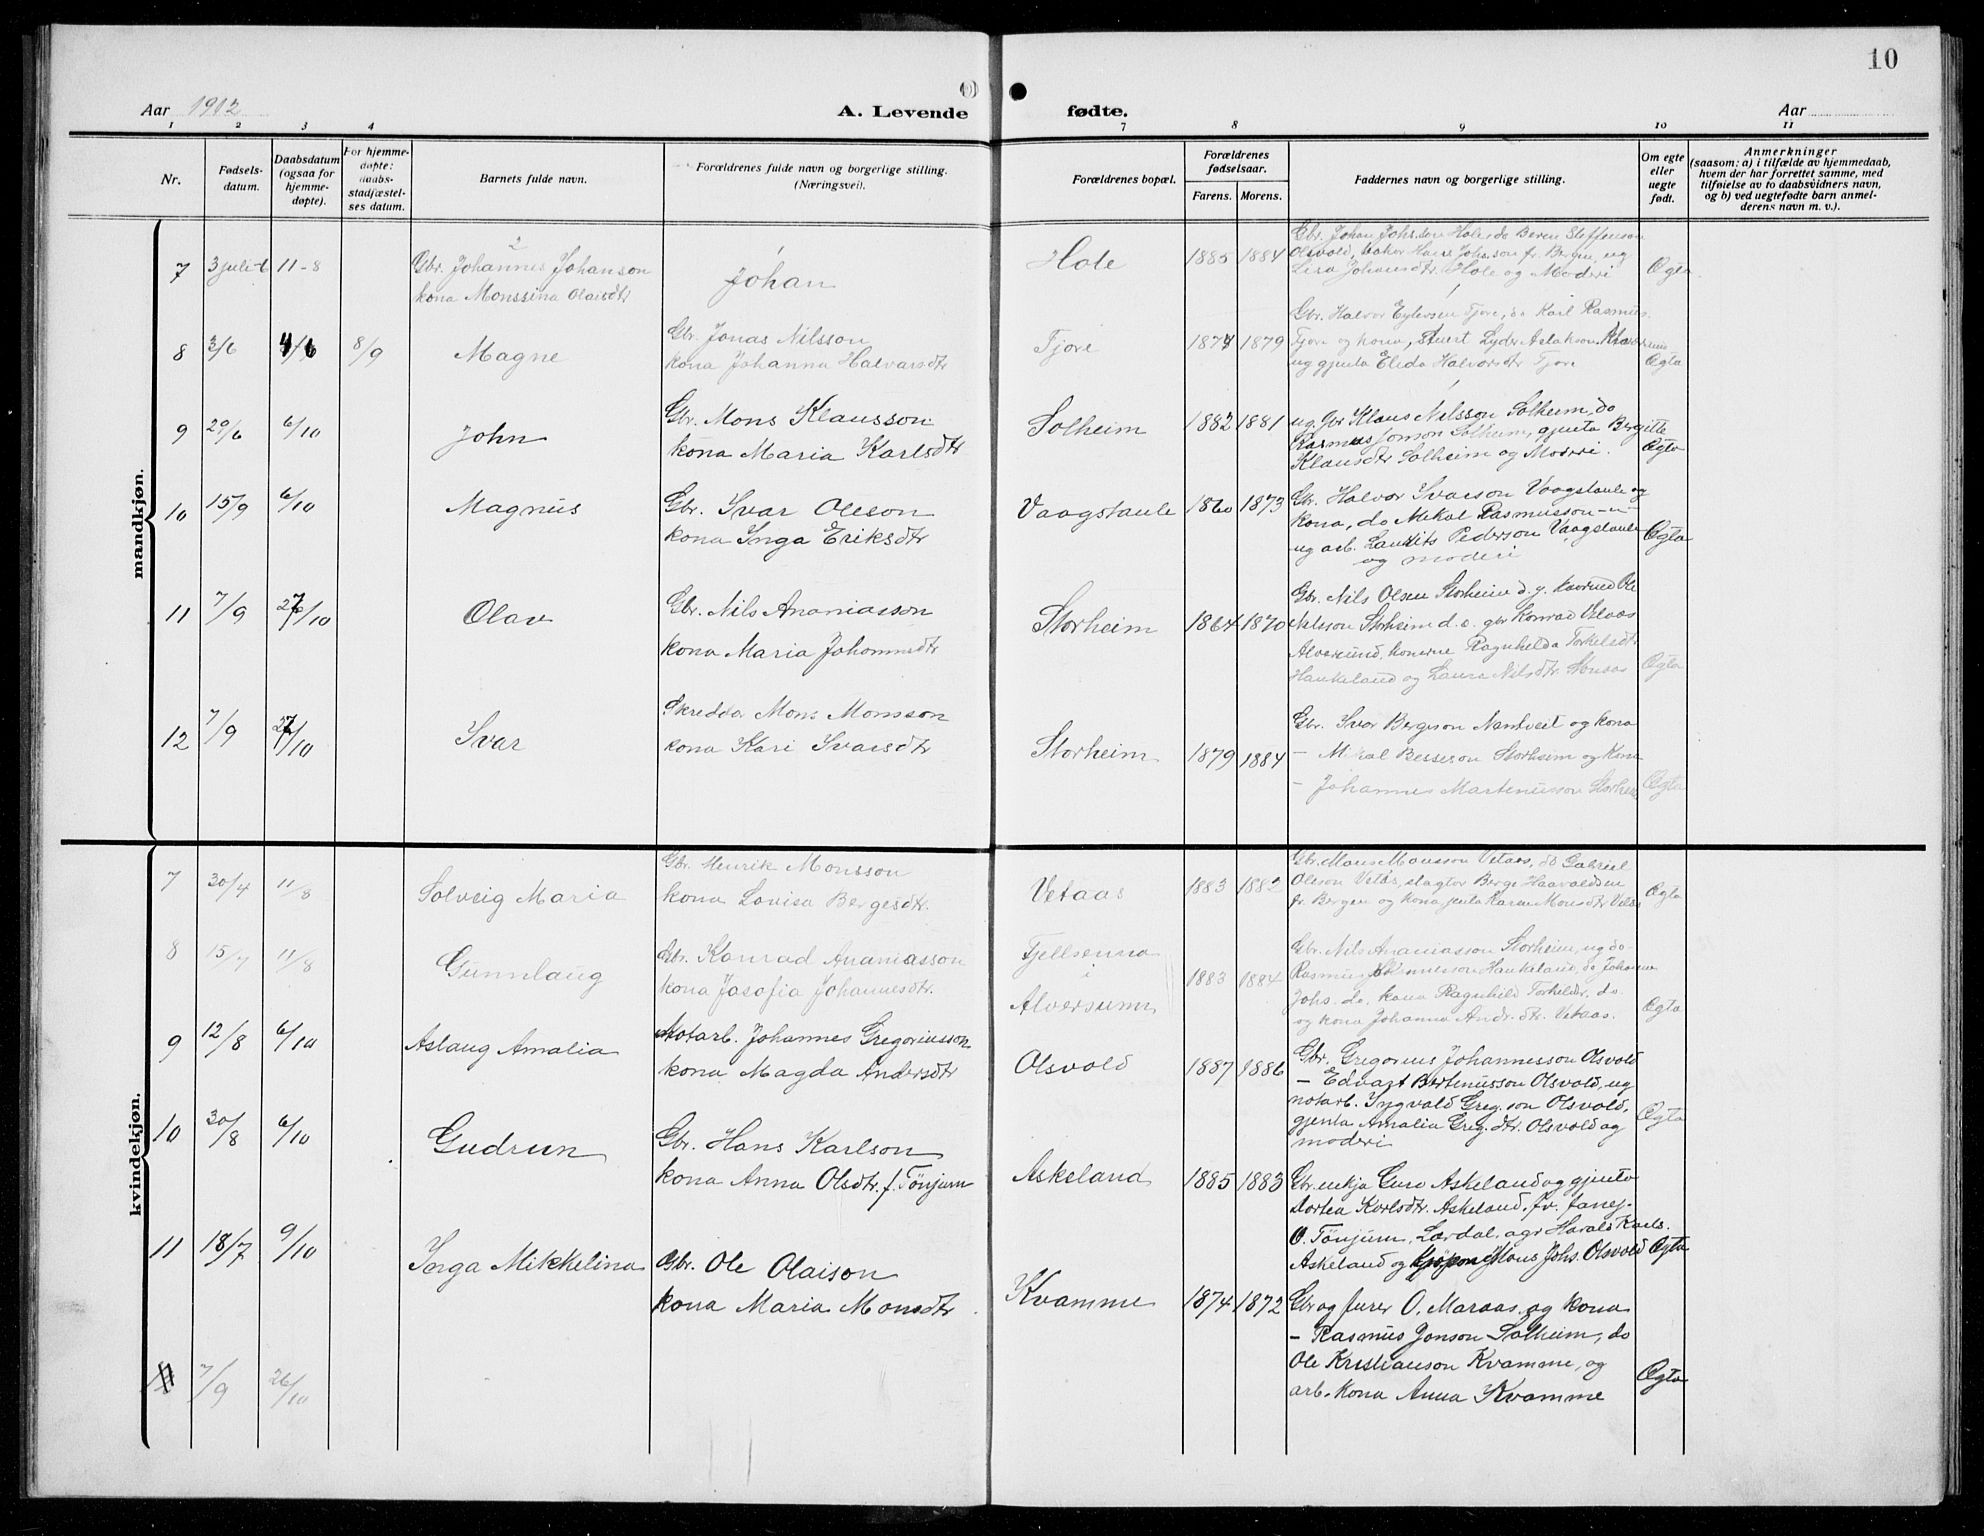 10
Aar 1912
A. Levende
fødte.
Aar
1 2 3 4 7 8 9 10 11
Nr.
Fødsels-
datum.
Daabsdatum
(ogsaa for
hjemme-
døpte).
For hjemme-
døpte:
daabs-
stadfæstel-
ses datum.
Barnets fulde navn.
Forældrenes fulde navn og borgerlige stilling.
(Næringsvei).
Forældrenes bopæl.
Forældrenes
fødselsaar.
Farens. Morens.
Faddernes navn og borgerlige stilling.
Om egte
eller
uegte
født.
Anmerkninger
(saasom: a) i tilfælde av hjemmedaab,
hvem der har forrettet samme, med
tilføielse av to daabsvidners navn,
og b) ved uegtefødte barn anmel-
derens navn m. v.).
mandkjøn.
7 3 juli 11-8
Gbr. Johannes Johanson
kona Monssina Olaisdtr
Johan
Hole 1885 1884
Olsvold, baker Hans Johsson fr. Bergen, ug
Lisa Johansdtr. Hole og Moderi
Ægta
8 3/6 4/6 8/9 Magne
Gbr. Jonas Nilsson
kona Johanna Halvarsdtr
Tjore 1874 1879
Gbr. Halvor Eylevsen Tjore, do Karl Rasmus.
Tjore og kona, Lyder Aslakson
ug gjenta Elida Halvorsdtr Tjore
Ægta
9 29/6 6/10 John
Gbr. Mons Klausson
kona Maria Karlsdtr
Solheim 1882 1881
ug. Gbr Klaus Nilsson Solheim, do
Rasmus Jonson Solheim, gjenta Bergitte
Klausdtr Solheim og Moderi.
Ægta
10 15/9 6/10 Magnus
Gbr. Ivar Oleson
kona Inga Eriksdtr
Vaagstaule 1860 1873
Gbr. Halvor Ivarson Vaagstaule og
kona, do Mekal Rasmusson -"-
ug arb. Laurits Pederson Vaagstaule
og moderi
Ægta
11 7/9 27/10 Olav
Gbr. Nils Ananiasson
kona Maria Johannsdtr
Storheim 1864 1870
Gbr. Nils Olsen Storheim d. y. Ole
Nilsson Storheim d. e. gbr Konrad Vetaas
Alversund, konerne Ragnhilda Torkelsdtr
Haukeland og Laura Nilsdtr
Ægta
12 7/9 27/10 Ivar
Skredder Mons Monsson
kona Kari Ivarsdtr
Storheim 1879 1884
Gbr. Ivar Bergson Nontveit og kona
- Mikal Besseson Storheim og Kona
- Johannes Martinusson Storheim
Ægta
kvindekjøn.
7 30/4 11/8 Solveig Maria
Gbr. Henrik Monsson
kona Lovisa Bergesdtr.
Vetaas 1883 1882
Gbr. Mons Monsson Vetaas, do Gabriel
Oleson Vetås, slagter Berge Haavaldsen
fr. Bergen og kona, jenta Karen Monsdtr Vetås
Ægta
8 15/7 11/8 Gunnlaug
Gbr. Konrad Ananiasson
kona Josofia Johannesdtr.
Fjellsenna
i
Alversunn
1883 1884
Gbr. Nils Ananiasson Storheim, ug do-
Rasmus Haukeland, do Johannes
Johs. do. kona Ragnhild Torkelsdtr, do
og kona Johanna Andr. dtr. Vetaas.
Ægta
9 12/8 6/10 Aslaug Amalia
Notarb. Johannes Gregoriusson
kona Magda Andersdtr
Olsvold 1887 1886
Gbr. Gregorius Johannesson Olsvold
- Edvart Bertinusson Olsvold, ug
notarb. Ingvald Greg. son Olsvold,
gjenta Amalia Greg. dtr. Olsvold og
moderi
Ægta
10 30/8 6/10 Gudrun
Gbr. Hans Karlson
kona Anna Olsdtr. f. Tönjum
Askeland 1885 1883
Gbr. enkja Guro Askeland og gjenta
Dortea Karlsdtr. Askeland, fr.
O. Tönjum, Lærdal, agr Harald Karls.
Askeland og Hans Johs. Olsvold Ægta
11 18/7 9/10 Inga Mikkelina
Gbr. Ole Olaison
kona Maria Monsdtr.
Kvamme 1874 1872
Gbr og furer O. Maraas og kona
- Rasmus Jonson Solheim, do
Ole Kristianson Kvamme, og
arb. kona Anna Kvamme
Ægta
7/9 26/10